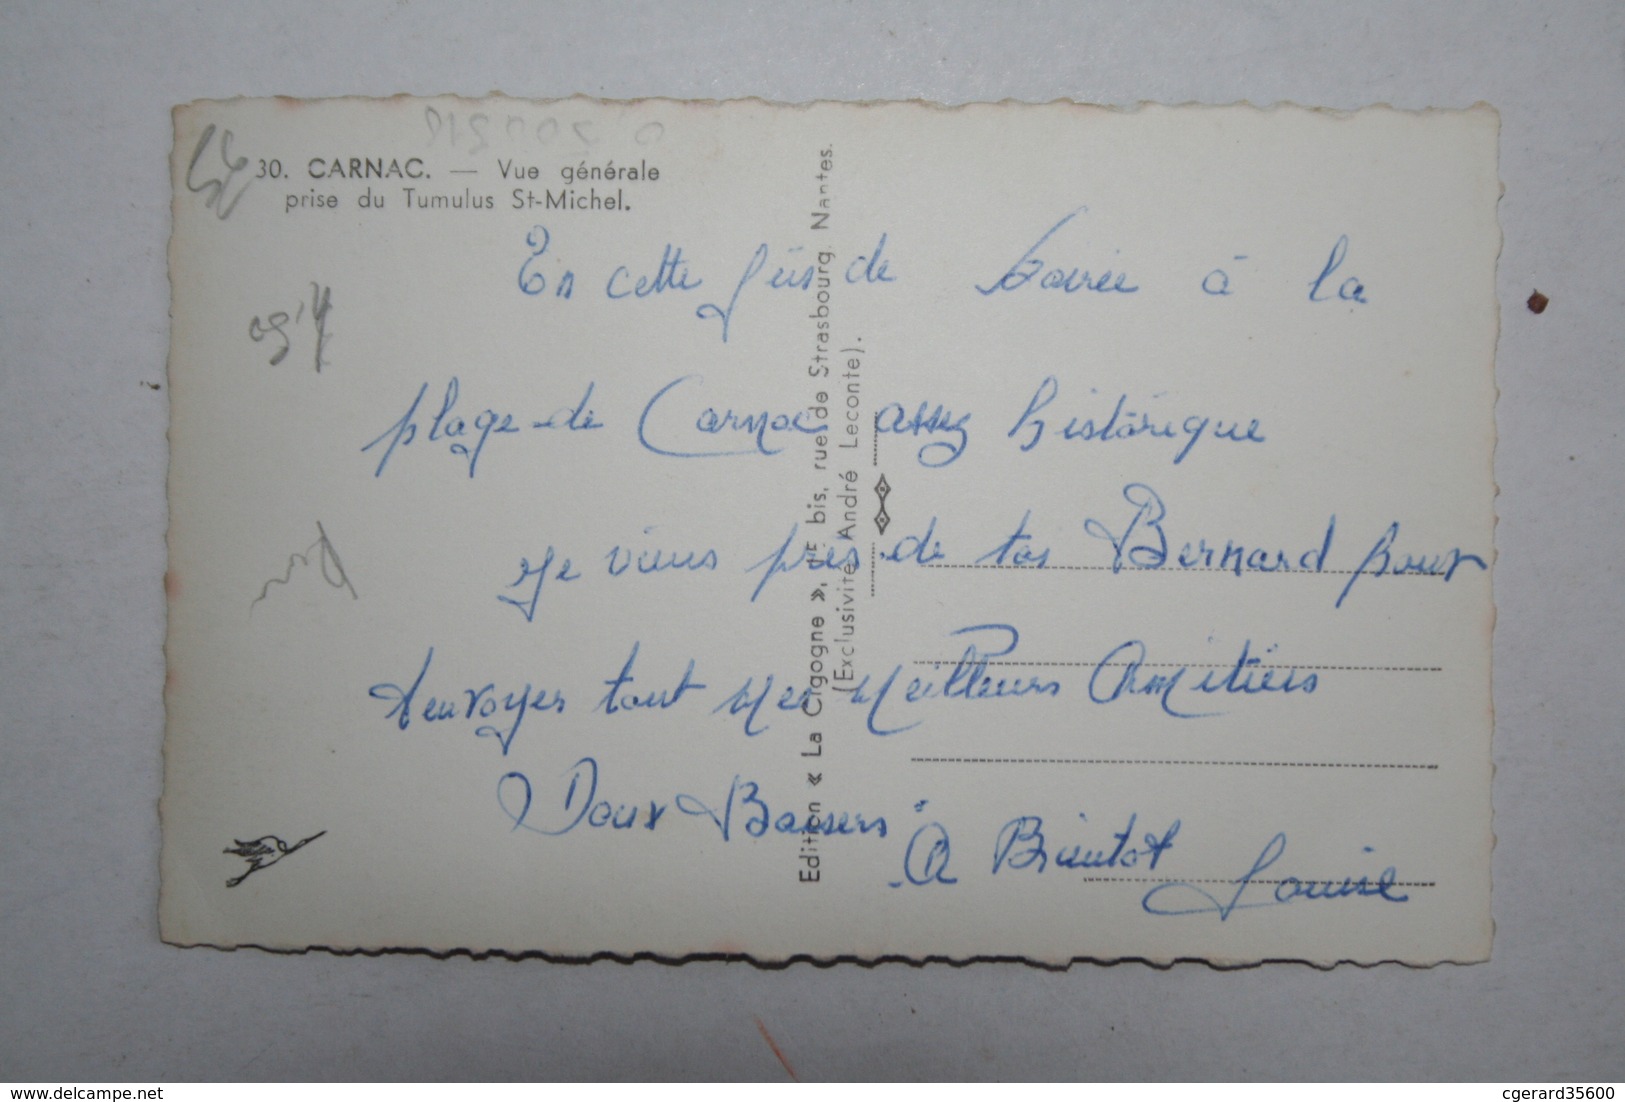 30. CARNAC. — Vue générale
prise du Tumulus St-Michel.
En cette fin de Soirée à la
plage de Carnac assez historique
je viens près de toi Bernard pour
t'envoyer tout mes Meilleurs Amitiés
Doux Baisers.
A Bientot
Louise
Edition « La Cigogne », bis, rue de Strasbourg. Nantes.
(Exclusivité André Leconte).
delcampe.net
cgerard35600